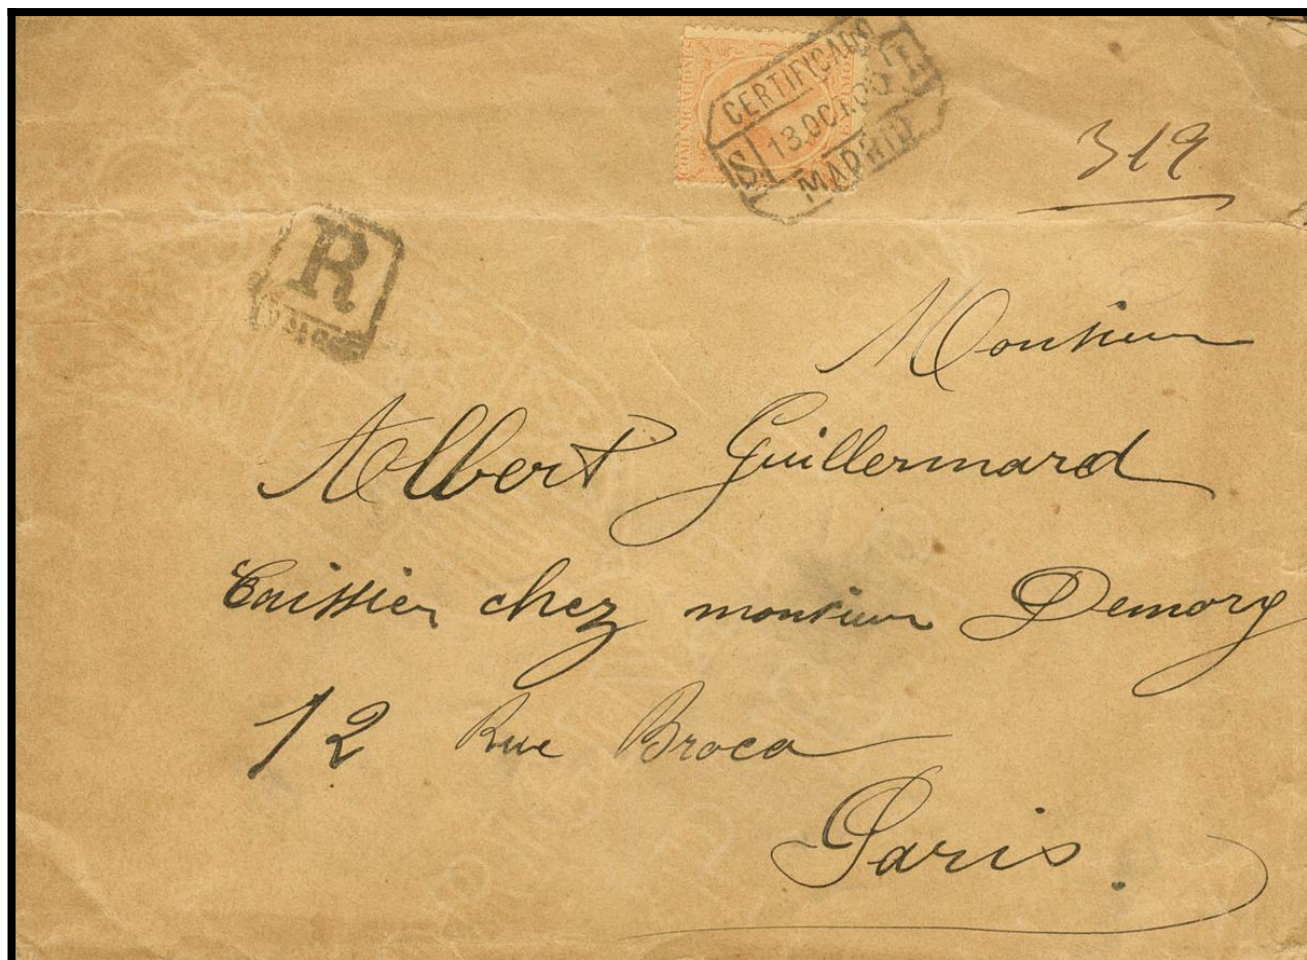 COMUNICACIONES
CERTIFICADO
S 13.OCT.00
MADRID
319
R
Monsieur
Albert Guillermard
Caissier chez monsieur Demory
12 Rue Broca
Paris.